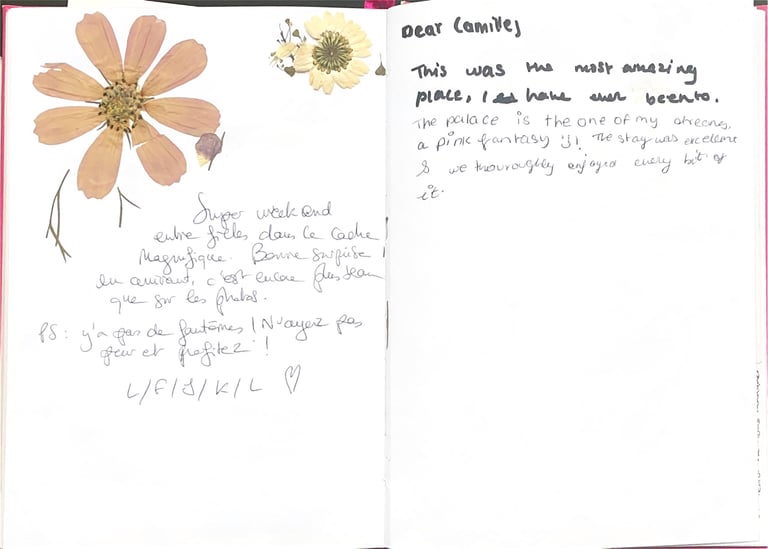 Super week end
entre filles dans le cadre
Magnifique. Bonne surprise !
en arrivant, c'est encore plus beau
que sur les photos.
PS : y'a pas de fantômes ! N'ayez pas
peur et profitez !
L/F/J/K/L ♡
Dear Camille,
This was the most amazing
place, I have ever been to.
The palace is the one of my dreams,
a pink fantasy :)! The stay was excellent
& we thouroughly enjoyed every bit of
it.